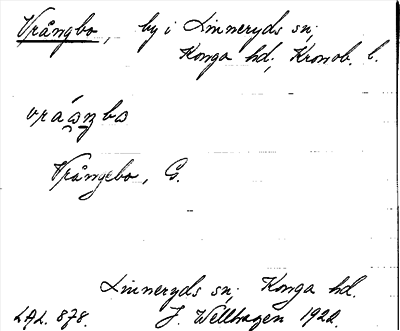 Vrångbo, by i Linneryds sn,
Konga hd, Kronob. l.
vráaŋbo
Vrångebo, G.
Linneryds sn, Konga hd.
LAL. 878. J. Wellhagen 1922.